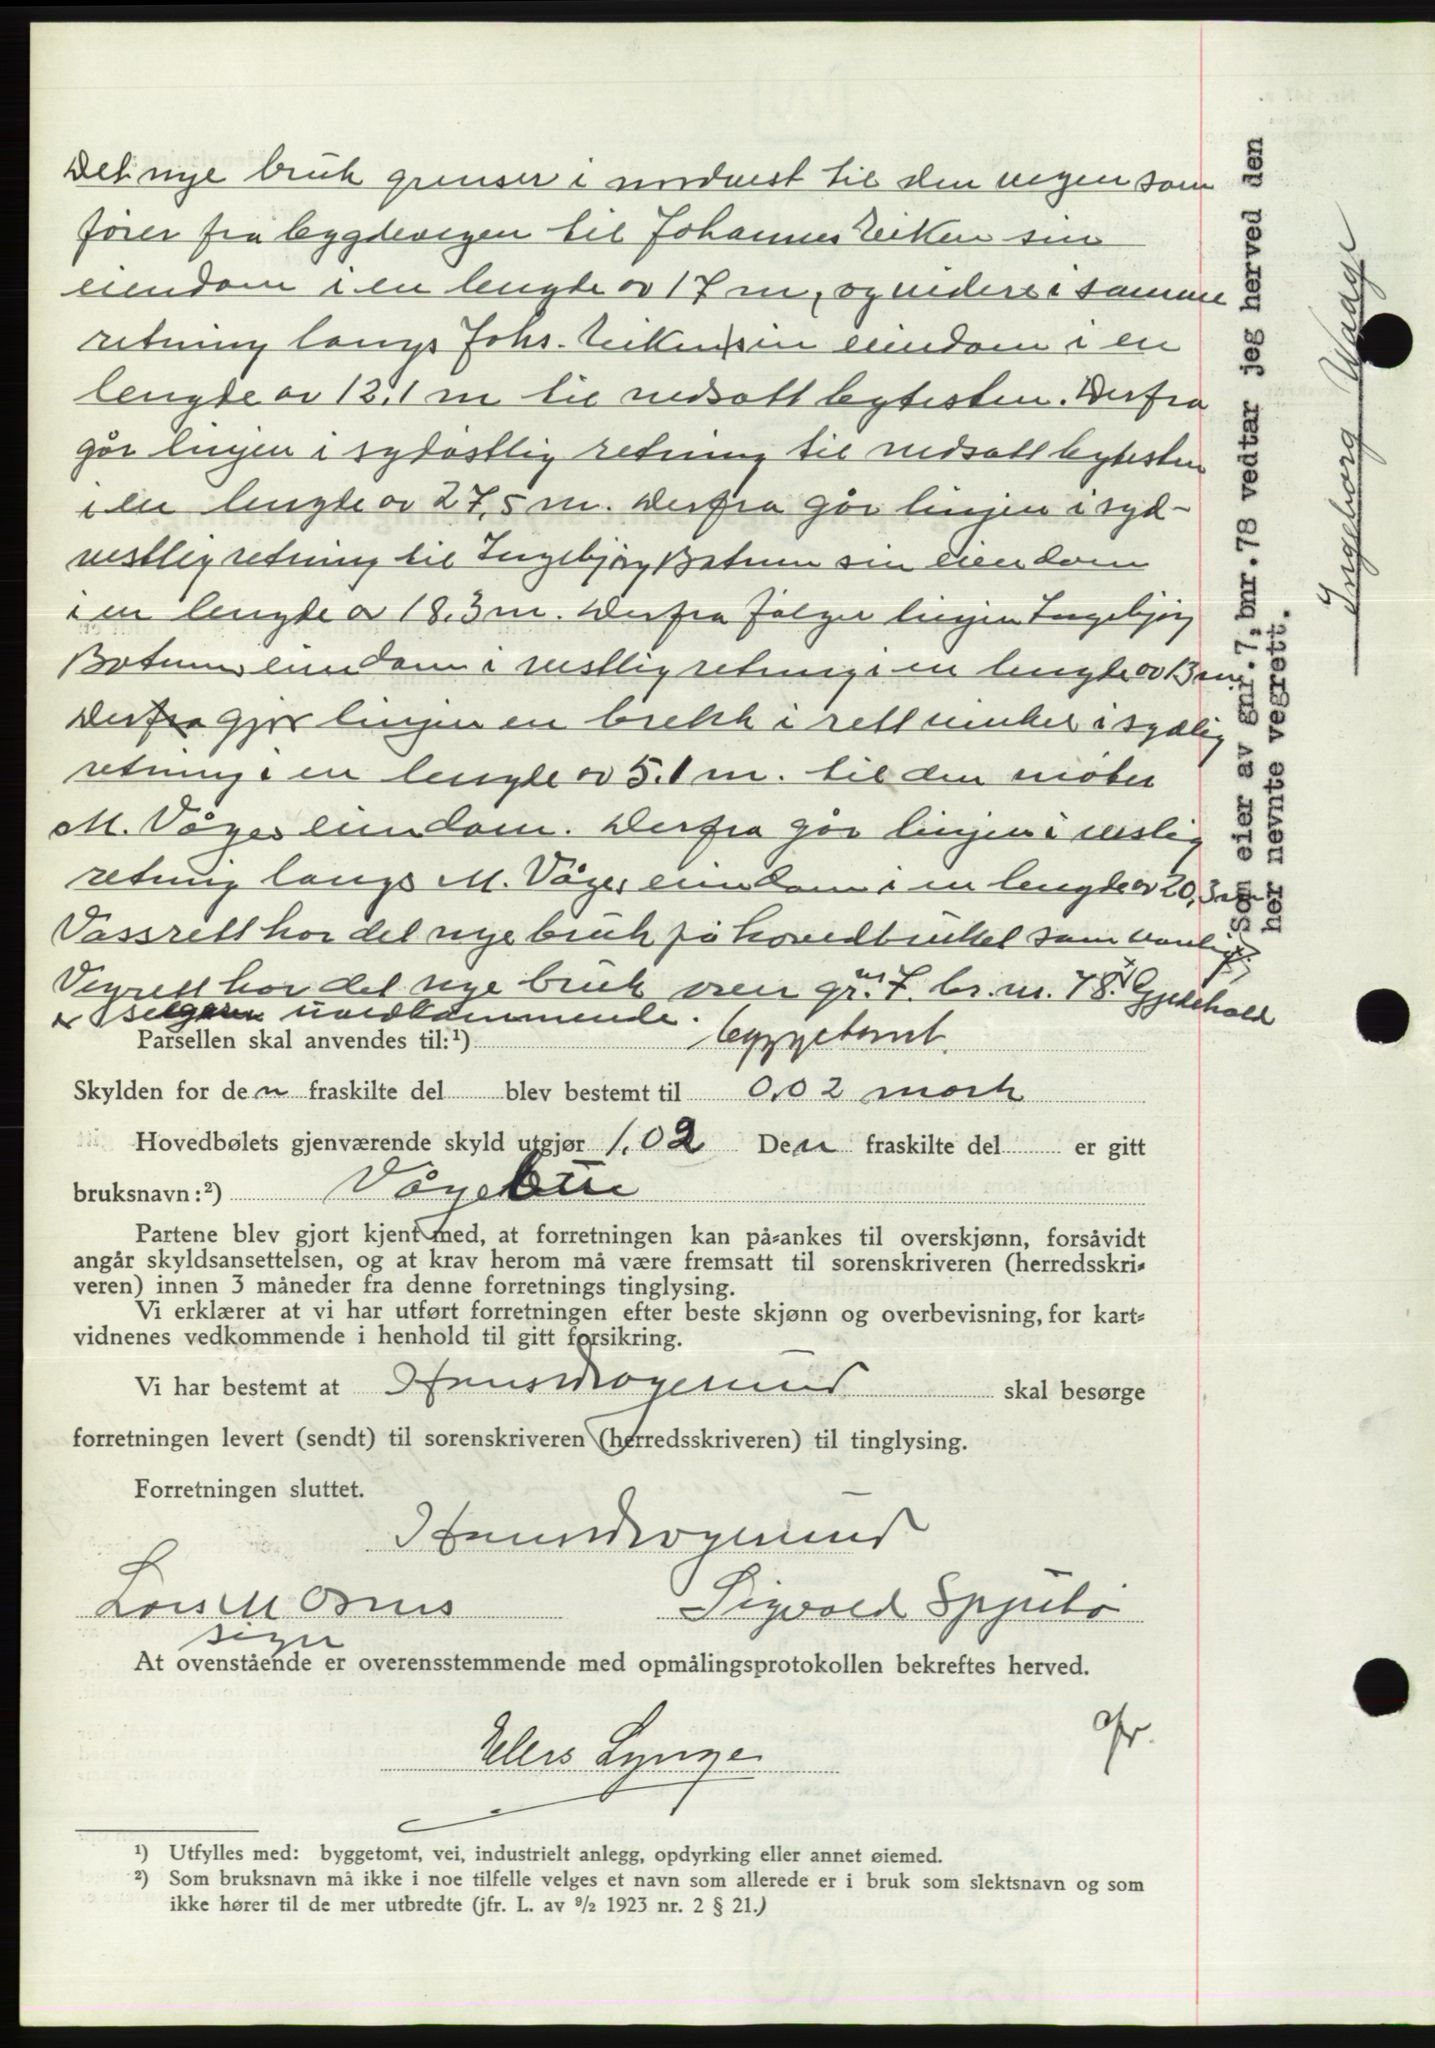 Det nye bruk grenser i nordvest til den vegen som
fører fra bygdevegen til Johannes Eiken sin
eiendom i en lengde av 17 m, og videre i samme
retning langs Johs. Eiken sin eiendom i en
lengde av 12,1 m til nedsatt bytesten. Derfra
går linjen i sydøstlig retning til nedsatt bytesten
i en lengde av 27,5 m. Derfra går linjen i syd-
vestlig retning til Ingebjørg Botnen sin eiendom
i en lengde av 18,3 m. Derfra følger linjen Ingebjørg
Botnens eiendom i vestlig retning i en lengde av 13 m
Derfra gjør linjen en brekk i rett vinkel i sydlig
retning i en lengde av 5,1 m. til den møter
M. Våges eiendom. Derfra går linjen i vestlig
retning langs M. Våges eiendom i en lengde av 20,3 m
Vassrett har det nye bruk på hovedbruket som vanlig.
Vegrett har det nye bruk over gr. nr 7. br. nr. 78. x) Gjedehold
x selgeren uvedkommende.
Parsellen skal anvendes til:¹) byggetomt.
Skylden for den fraskilte del blev bestemt til 0,02 mark
Hovedbølets gjenværende skyld utgjør 1,02 Den fraskilte del er gitt
bruksnavn:²) Vågebu
Partene blev gjort kjent med, at forretningen kan på-ankes til overskjønn, forsåvidt
angår skyldsansettelsen, og at krav herom må være fremsatt til sorenskriveren (herredsskri-
veren) innen 3 måneder fra denne forretnings tinglysing.
Vi erklærer at vi har utført forretningen efter beste skjønn og overbevisning, for kart-
vidnenes vedkommende i henhold til gitt forsikring.
Vi har bestemt at Hans Drogesund skal besørge
forretningen levert (sendt) til sorenskriveren (herredsskriveren) til tinglysing.
Forretningen sluttet.
Hans Drogesund
Lars M Osnes Sigvald Spjutø
sign
At ovenstående er overensstemmende med opmålingsprotokollen bekreftes herved.
Elers Lynge
¹) Utfylles med: byggetomt, vei, industrielt anlegg, opdyrking eller annet øiemed.
²) Som bruksnavn må ikke i noe tilfelle velges et navn som allerede er i bruk som slektsnavn og som
ikke hører til de mer utbredte (jfr. L. av 9/2 1923 nr. 2 § 21.)
Som eier av gnr.7, bnr.78 vedtar jeg herved den
her nevnte vegrett.
Ingeborg Waage